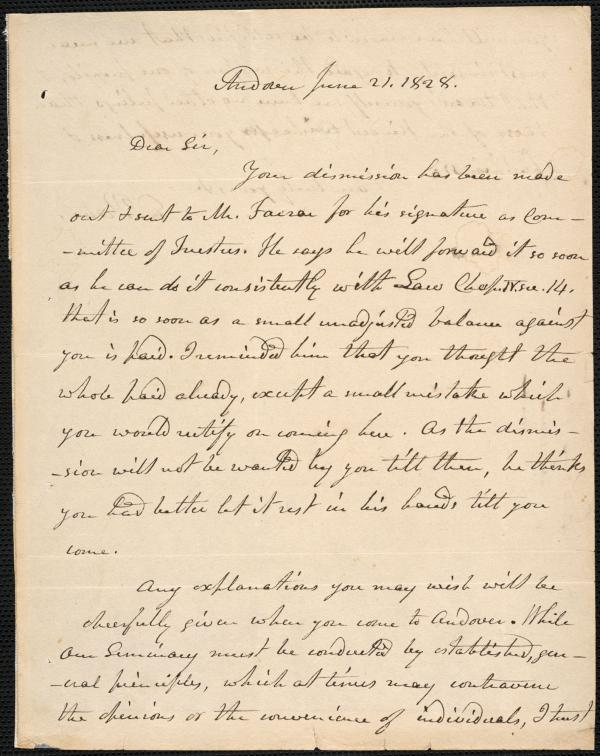 Andover June 21. 1828.
Dear Sir,
Your dismission has been made
out & sent to Mr. Farrar for his signature as Com-
-mittee of Trustees. He says he will forward it so soon
as he can do it consistently with Law Chap. IV. sec. 14.
that is so soon as a small unadjusted balance against
you is paid. I reminded him that you thought the
whole paid already, except a small mistake which
you would rectify on coming here. As the dismis-
-sion will not be wanted by you till then, he thinks
you had better let it rest in his hands till you
come.
Any explanations you may wish will be
cheerfully given when you come to Andover. While
our Seminary must be conducted by established, gen-
-eral principles, which at times may contravene
the opinions or the convenience of individuals, I trust